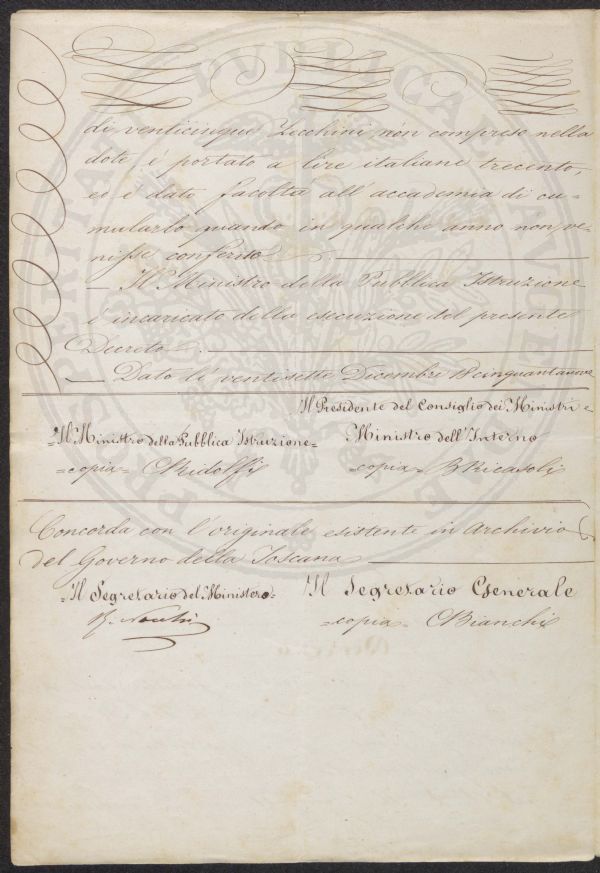 di venticinque Zecchini, non compreso nella
dote è portato a lire italiane trecento,
ed è dato facoltà all' accademia di cu-
mularlo quando in qualche anno non ve-
nisse conferito.
— Il Ministro della Pubblica Istruzione
è incaricato della esecuzione del presente
Decreto.
— Dato lì ventisette Dicembre 18cinquantanove
Il Presidente del Consiglio dei Ministri e
Ministro dell'Interno
=Il Ministro della Pubblica Istruzione=
=copia= CRidolfi
=copia= BRicasoli
Concorda con l'originale esistente in Archivio
del Governo della Toscana
=Il Segretario del Ministero=
Il Segretario Generale
=copia= CBianchi